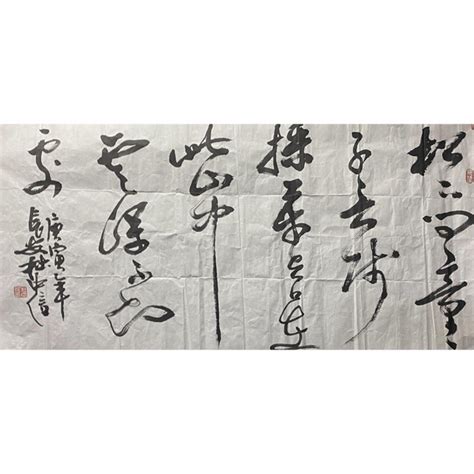 松下问童
子言师
採药去只在
此山中
云深不知
处
庚寅年
長安